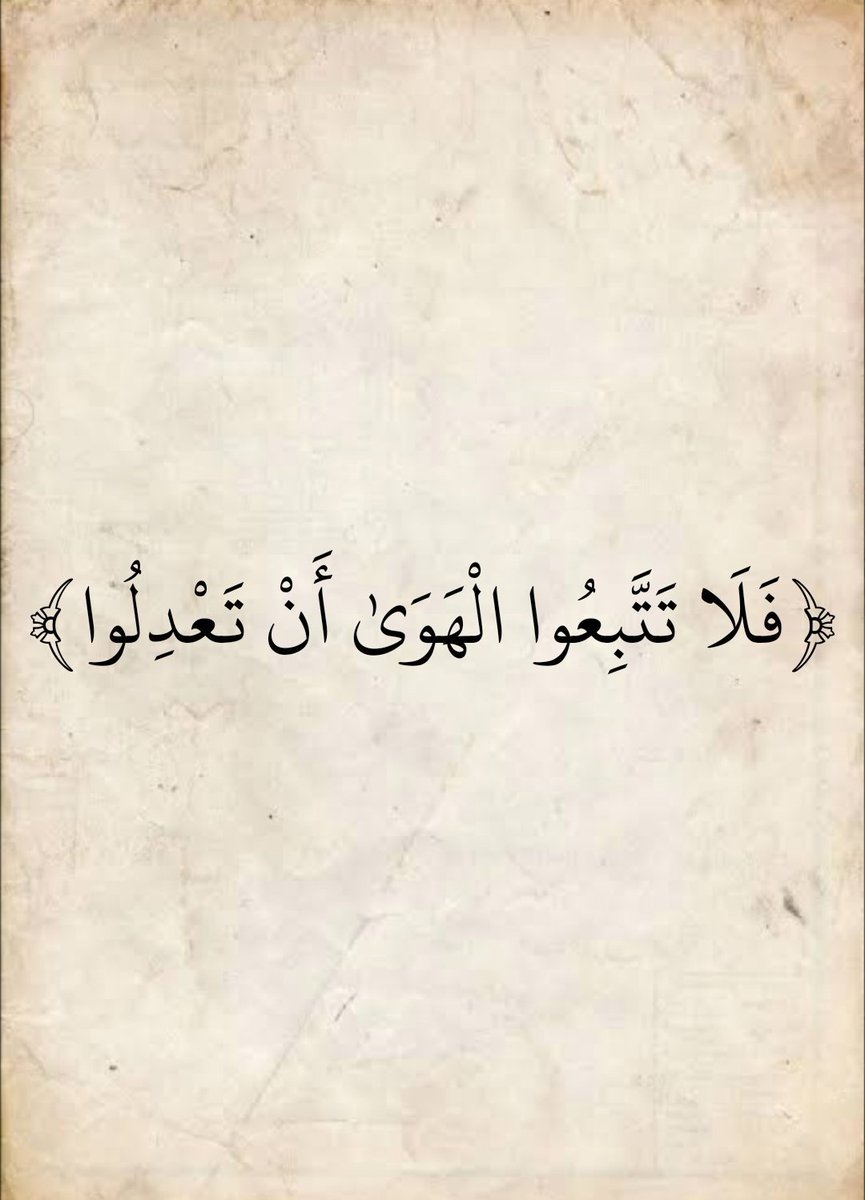 ﴿فَلَا تَتَّبِعُوا الْهَوَىٰ أَنْ تَعْدِلُوا﴾